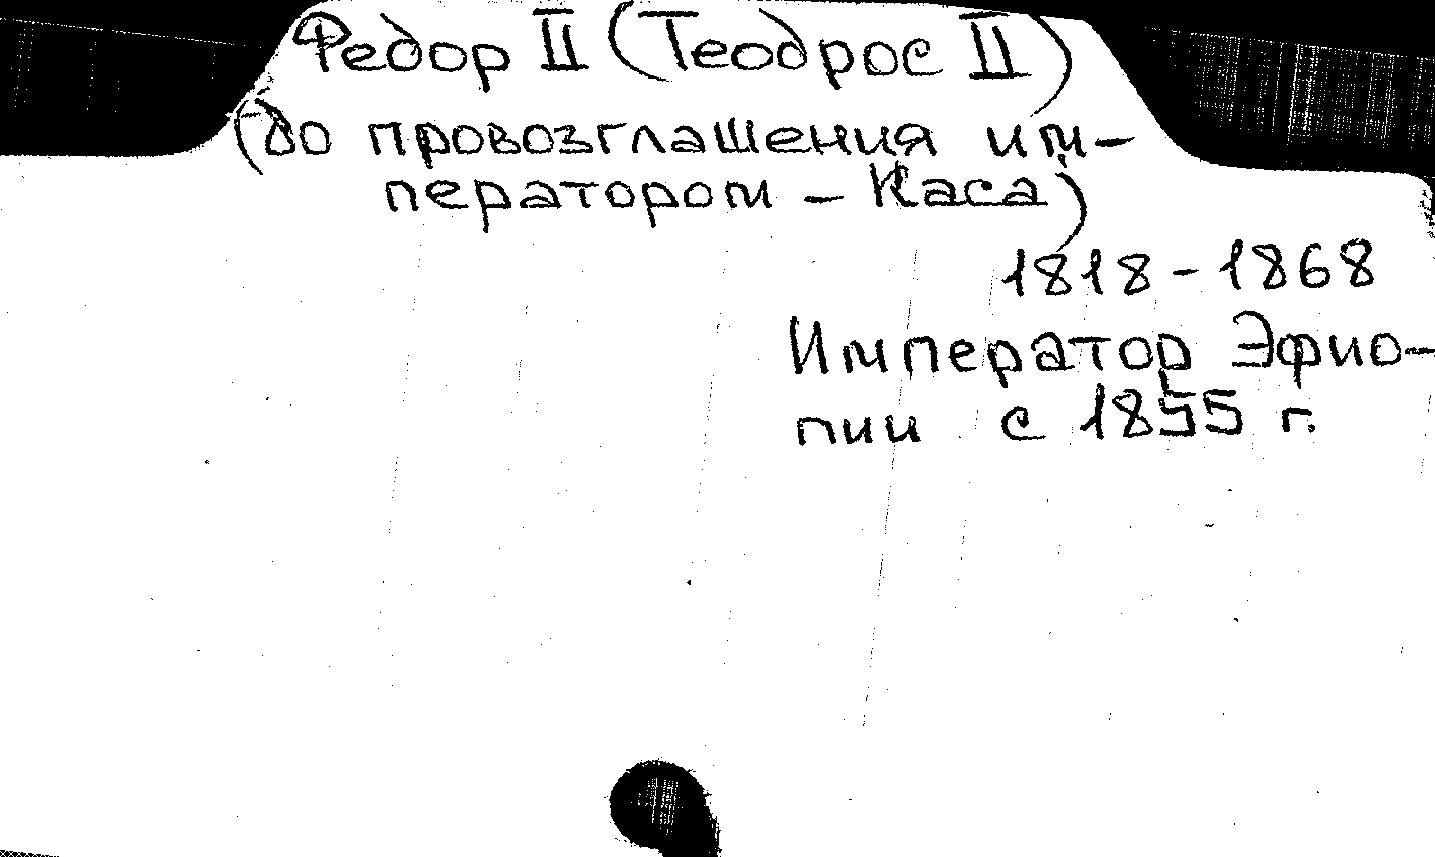 Федор II (Теодрос II)
(до провозглашения им-
ператором – Каса)
1818-1868
Император Эфио-
пии с 1855 г.